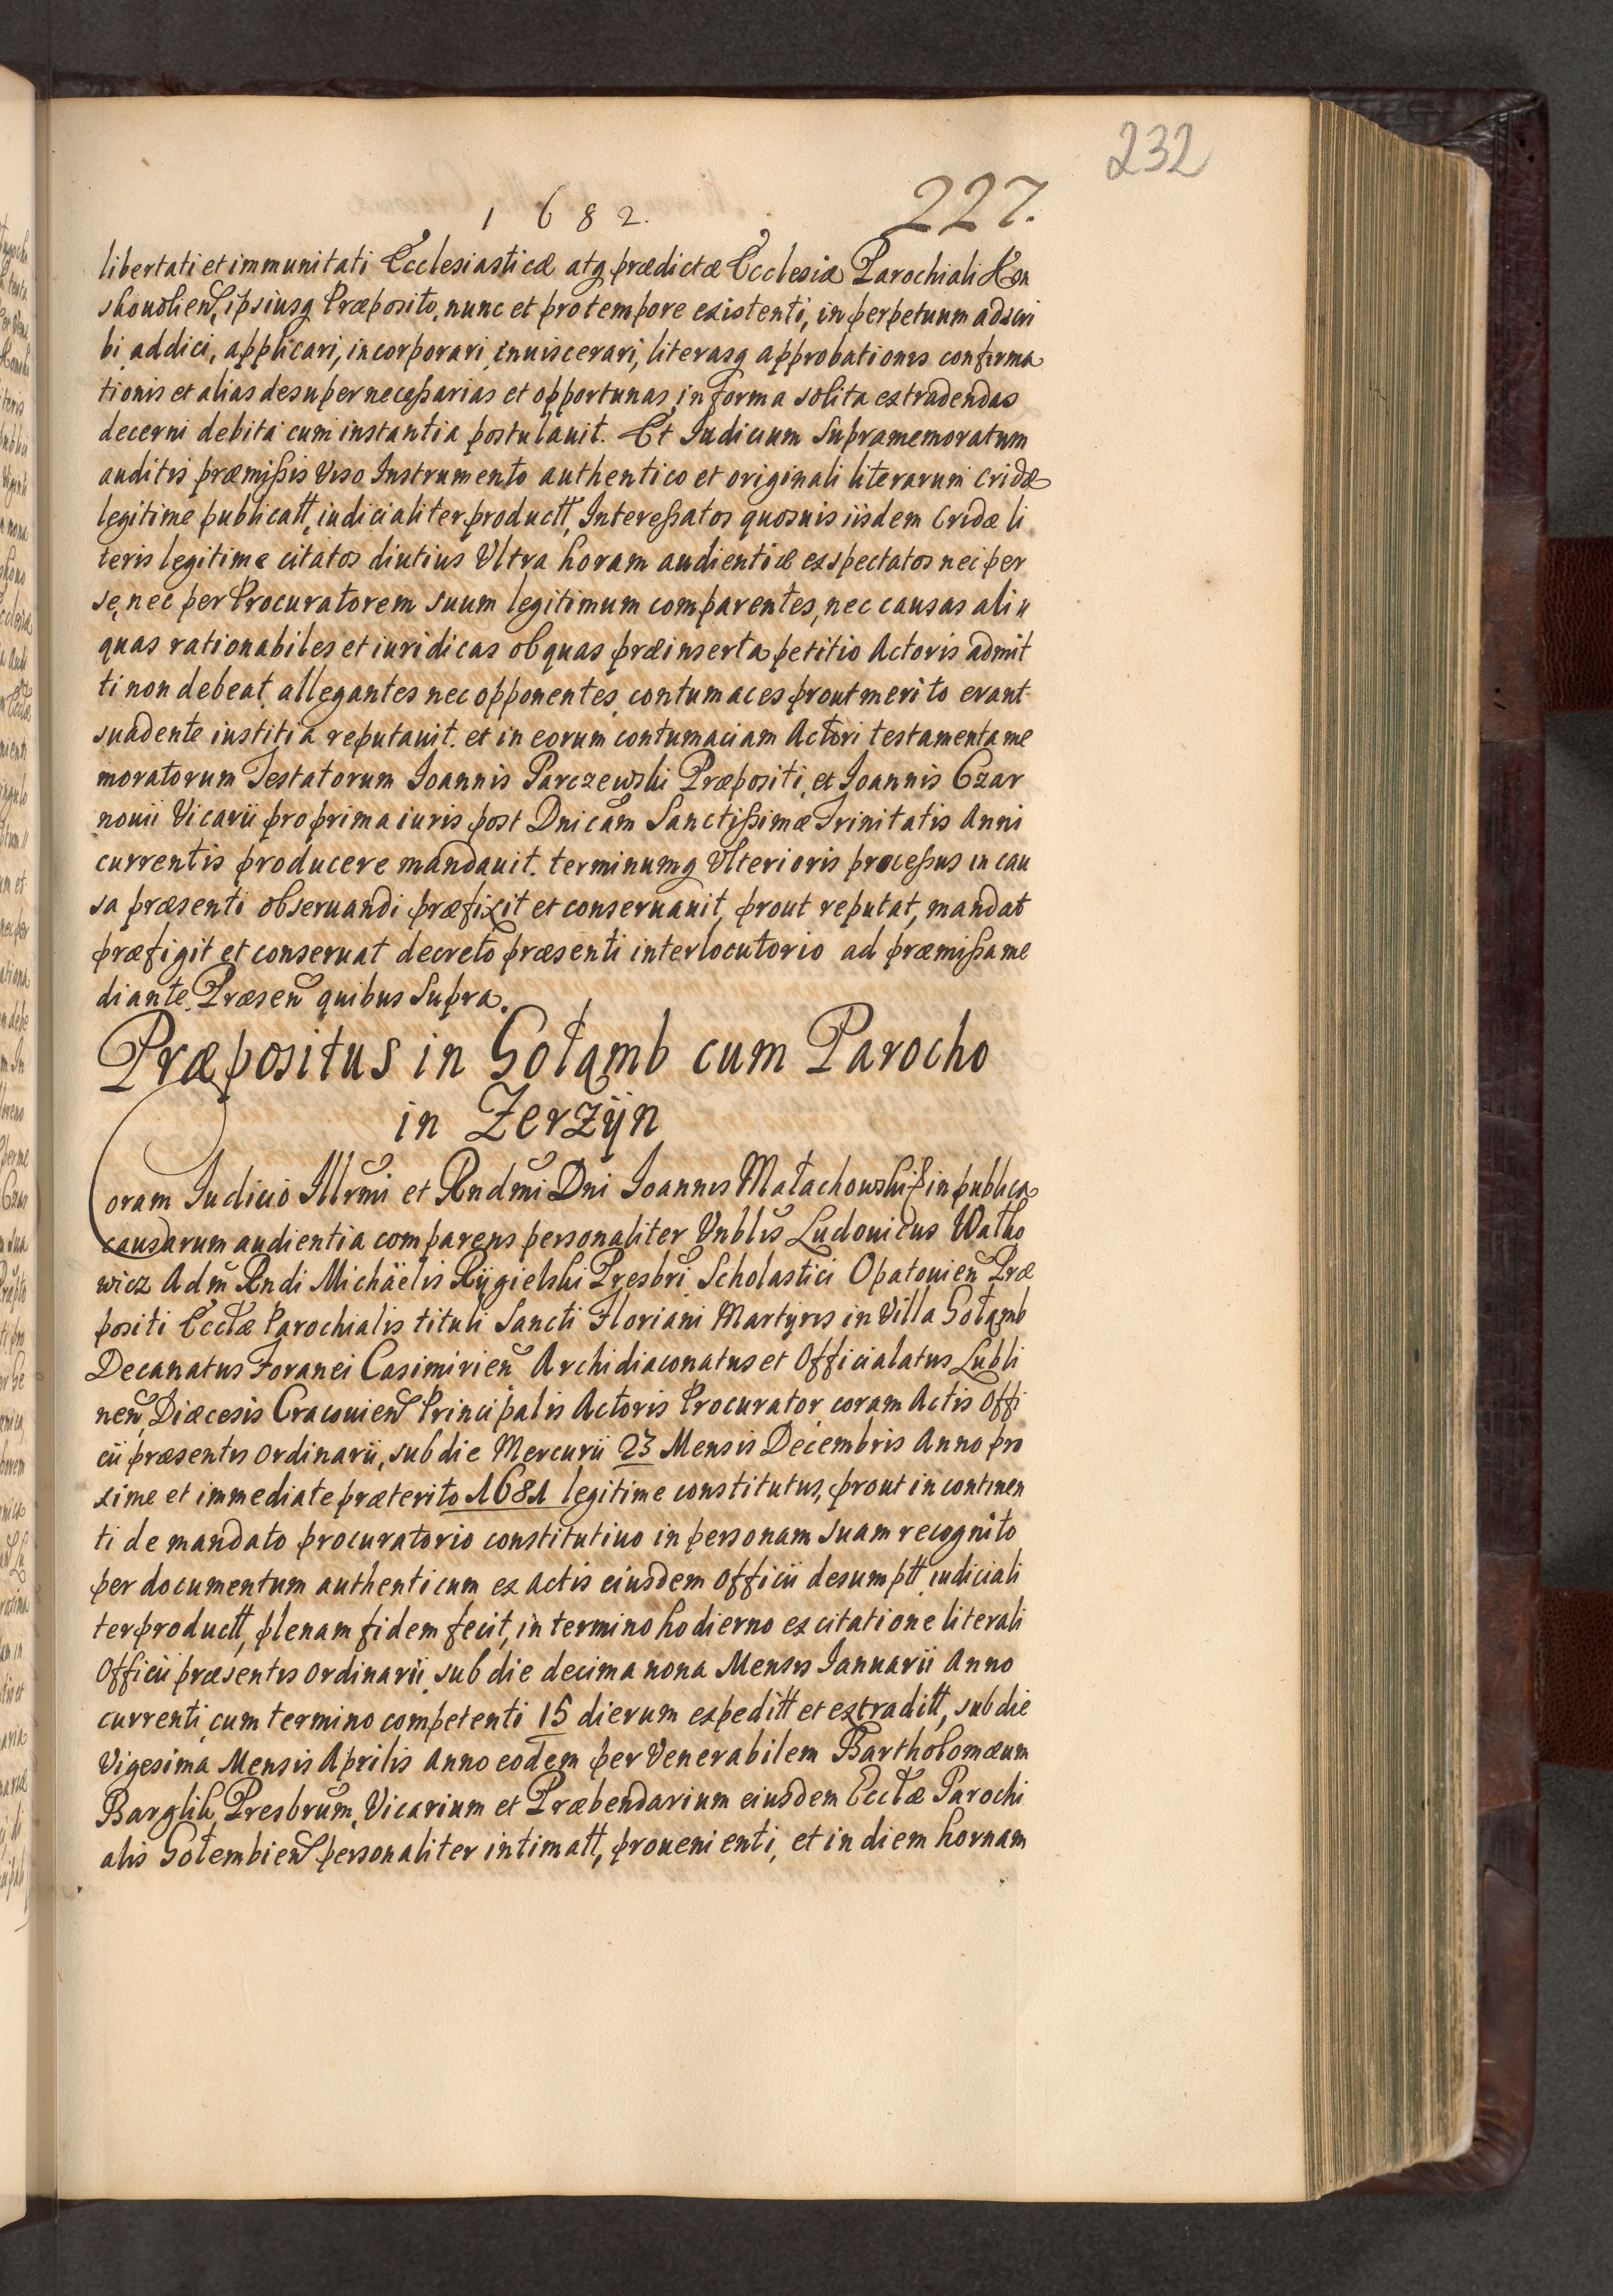 232
1682. 227.
libertati et immunitati Ecclesiasticæ atq prædictæ Ecclesiæ Parochiali Kon
skouolien, ipsiusq Præposito, nunc et pro tempore existenti, in perpetuum adscri
bi addici, applicari, incorporari inuiscerari, literasq approbationis confirma
tionis et alias desuper necessarias et opportunas, in forma solita extradendas
decerni debita cum instantia postulauit. Et Iudicium Supramemoratum
auditis præmissis Viso Instrumento authentico et originali literarum Cridæ
legitime publicatt, iudicialiter productt, Interessatos quosuis iisdem Cridæ li
teris legitime citatos diutius Vltra horam audientiæ exspectatos nec per
se, nec per Procuratorem suum legitimum comparentes, nec causas ali
quas rationabiles et iuridicas ob quas præinserta petitio Actoris admit
ti non debeat, allegantes nec opponentes, contumaces prout merito erant
suadente iustitia reputauit. et in eorum contumaciam Actori testamenta me
moratorum Testatorum Ioannis Parczewski Præpositi, et Ioannis Czar
nouii Vicarii pro prima iuris post Dnicam Sanctissimæ Trinitatis Anni
currentis producere mandauit. terminumq Vlterioris processus in cau
sa præsenti obseruandi præfixit et conseruauit, prout reputat, mandat
præfigit et conseruat decreto præsenti interlocutorio ad præmissa me
diante. Præsen quibus Supra.
Præpositus in Gołąmb cum Parocho
in Zerzÿn
Coram Iudicio Illrmi et Rndmi Dni Ioannis Małachowski in publica
causarum audientia comparens personaliter Vnblis Ludouicus Watho
wicz Adm Rndi Michäelis Rÿgielski Presbri Scholastici Opatouien Præ
positi Ecctæ Parochialis tituli Sancti Floriani Martyris in Villa Gołąmb
Decanatus Foranei Casimirien Archidiaconatus et Officialatus Lubli
nen, Diæcesis Cracouien Principalis Actoris Procurator coram Actis Offi
cii præsentis ordinarii, sub die Mercurii 23 Mensis Decembris Anno pro
xime et immediate præterito 1681 legitime constitutus, prout in continen
ti de mandato procuratorio constitutiuo in personam suam recognito
per documentum authenticum ex Actis eiusdem officii desumptt iudiciali
ter productt, plenam fidem fecit, in termino hodierno ex citatione literali
Officii præsentis ordinarii sub die decima nona Mensis Ianuarii Anno
currenti cum termino competenti 15 dierum expeditt et extraditt, sub die
Vigesima Mensis Aprilis Anno eodem per Venerabilem Bartholomæum
Barglik Presbrum, Vicarium et Præbendarium eiusdem Ecctæ Parochi
alis Gołembien personaliter intimatt, prouenienti, et in diem hornam